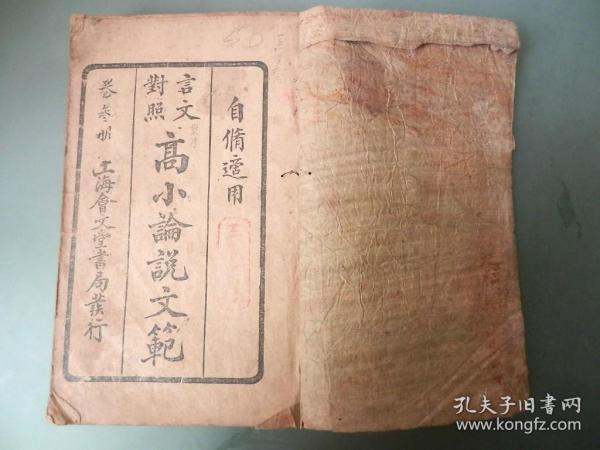 自脩適用
言文
對照
高小論説文範
卷叁册 上海會文堂書局發行
孔夫子旧书网
www.kongfz.com